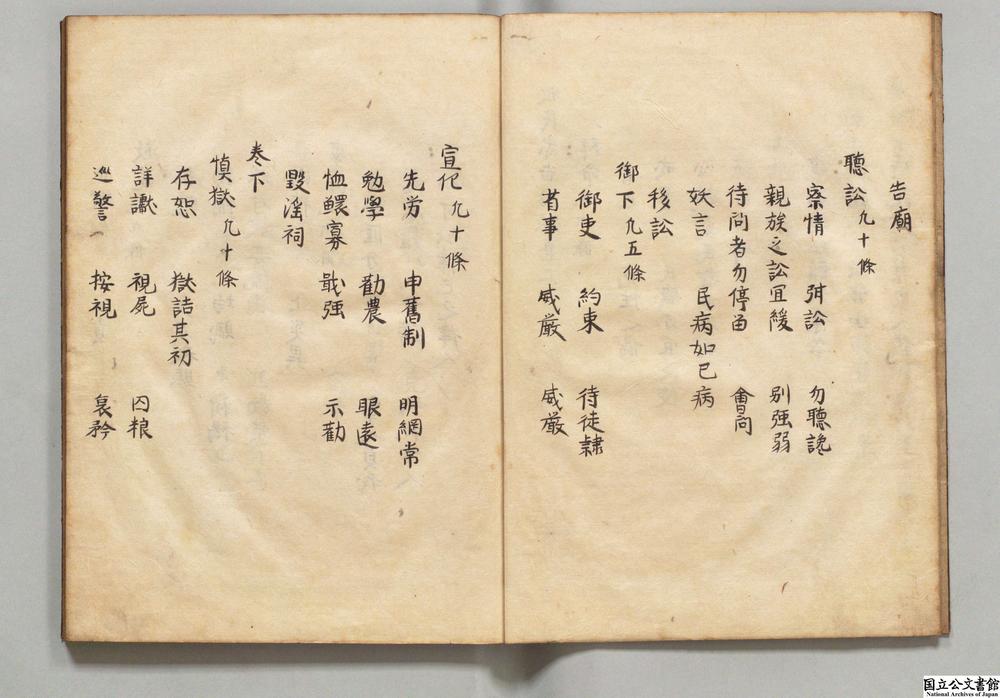 告廟
聽訟 凢十條
察情 弭訟 勿聽讒
親族之訟宜緩 別强弱
待問者勿停畱 會問
妖言 民病如己病
移訟
御下 凢五條
御吏 約束 待徒隸
省事 威嚴 威嚴
宣化 凢十條
先労 申舊制 明網常
勉學 勸農 眼遠
恤鰥寡 戢强 示勸
毀淫祠
巻下
慎獄 凢十條
存恕 獄詰其初
詳讞 視屍 囚粮
巡警 按視 哀矜
国立公文書館
National Archives of Japan